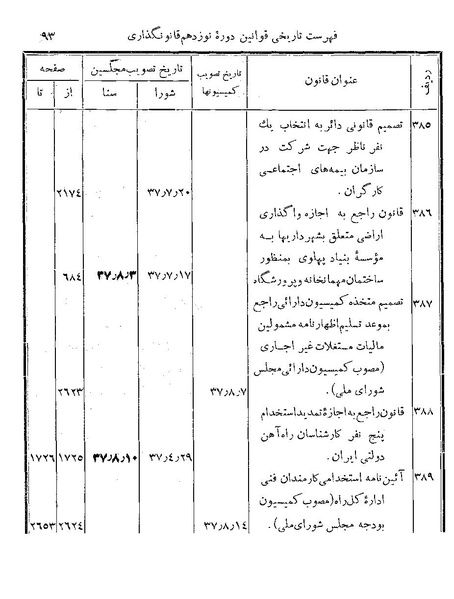 فهرست تاریخی قوانین دورهٔ نوزدهم قانونگذاری ۹۳
ردیف عنوان قانون تاریخ تصویب کمیسیونها تاریخ تصویب مجلسین صفحه
شورا سنا از تا
۳۸۵ تصمیم قانونی دائر به انتخاب یك
نفر ناظر جهت شرکت در
سازمان بیمه‌های اجتماعی
کارگران. ۳۷٫۷٫۲۰ ۲۱۷٤
۳۸٦ قانون راجع به اجازه واگذاری
اراضی متعلق بشهرداریها به
مؤسسهٔ بنیاد پهلوی بمنظور
ساختمان مهمانخانه و پرورشگاه ۳۷٫۷٫۱۷ ۳۷٫۸٫۳ ٦۸٤
۳۸۷ تصمیم متخذه کمیسیون دارائی راجع
بموعد تسلیم اظهارنامه مشمولین
مالیات مستغلات غیر اجاری
(مصوب کمیسیون دارائی مجلس
شورای ملی). ۳۷٫۸٫۷ ۲٦۲۳
۳۸۸ قانون راجع به اجازهٔ تمدید استخدام
پنج نفر کارشناسان راه‌آهن
دولتی ایران. ۳۷٫٤٫۲۹ ۳۷٫۸٫۱۰ ۱۷۲۵ ۱۷۲٦
۳۸۹ آئین نامه استخدامی کارمندان فنی
ادارهٔ کل راه (مصوب کمیسیون
بودجه مجلس شورای ملی). ۳۷٫۸٫۱٤ ۲٦۲٤ ۲٦۵۳